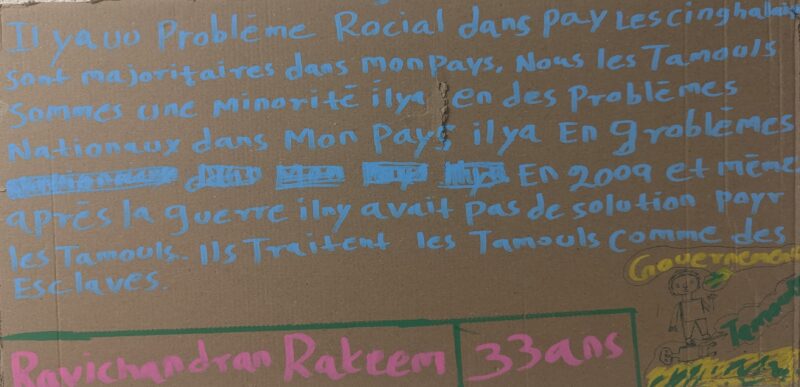 Il ya uo Problème Rocial dans pay Les cinghalais
sont majoritaires dans mon pays. Nous les Tamouls
sommes une minorité ilya en des Problèmes
Nationaux dans Mon Pays ilya En groblèmes
En 2009 et même
après la guerre ilny avait pas de solution payr
les Tamouls. Ils Traitent les Tamouls comme des
Esclaves.
Gouvernement
Ravichandran Rakeem 33ans